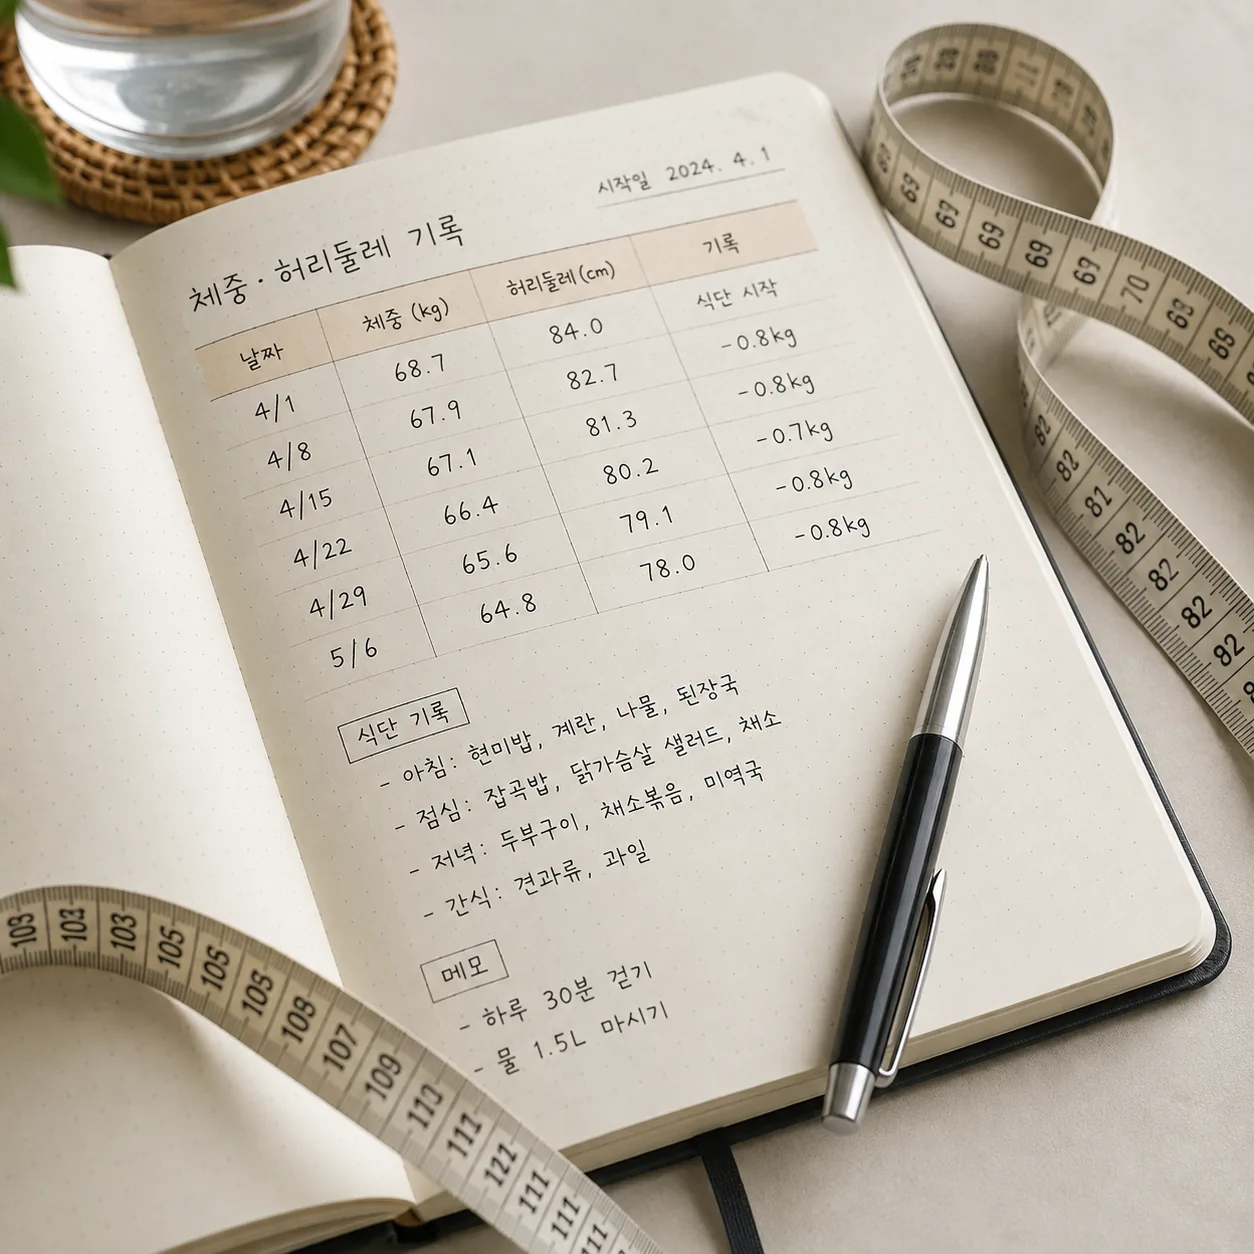 시작일 2024. 4. 1
체중·허리둘레 기록
날짜 체중 (kg) 허리둘레 (cm) 기록
4/1 68.7 84.0 식단 시작
4/8 67.9 82.7 -0.8kg
4/15 67.1 81.3 -0.8kg
4/22 66.4 80.2 -0.7kg
4/29 65.6 79.1 -0.8kg
5/6 64.8 78.0 -0.8kg
식단 기록
- 아침: 현미밥, 계란, 나물, 된장국
- 점심: 잡곡밥, 닭가슴살 샐러드, 채소
- 저녁: 두부구이, 채소볶음, 미역국
- 간식: 견과류, 과일
메모
- 하루 30분 걷기
- 물 1.5L 마시기
69 67 69 69 67 70
82 81 82 82 82 82
103 103 103 105 105 108 108 107 109 113 111 121 111 111 111